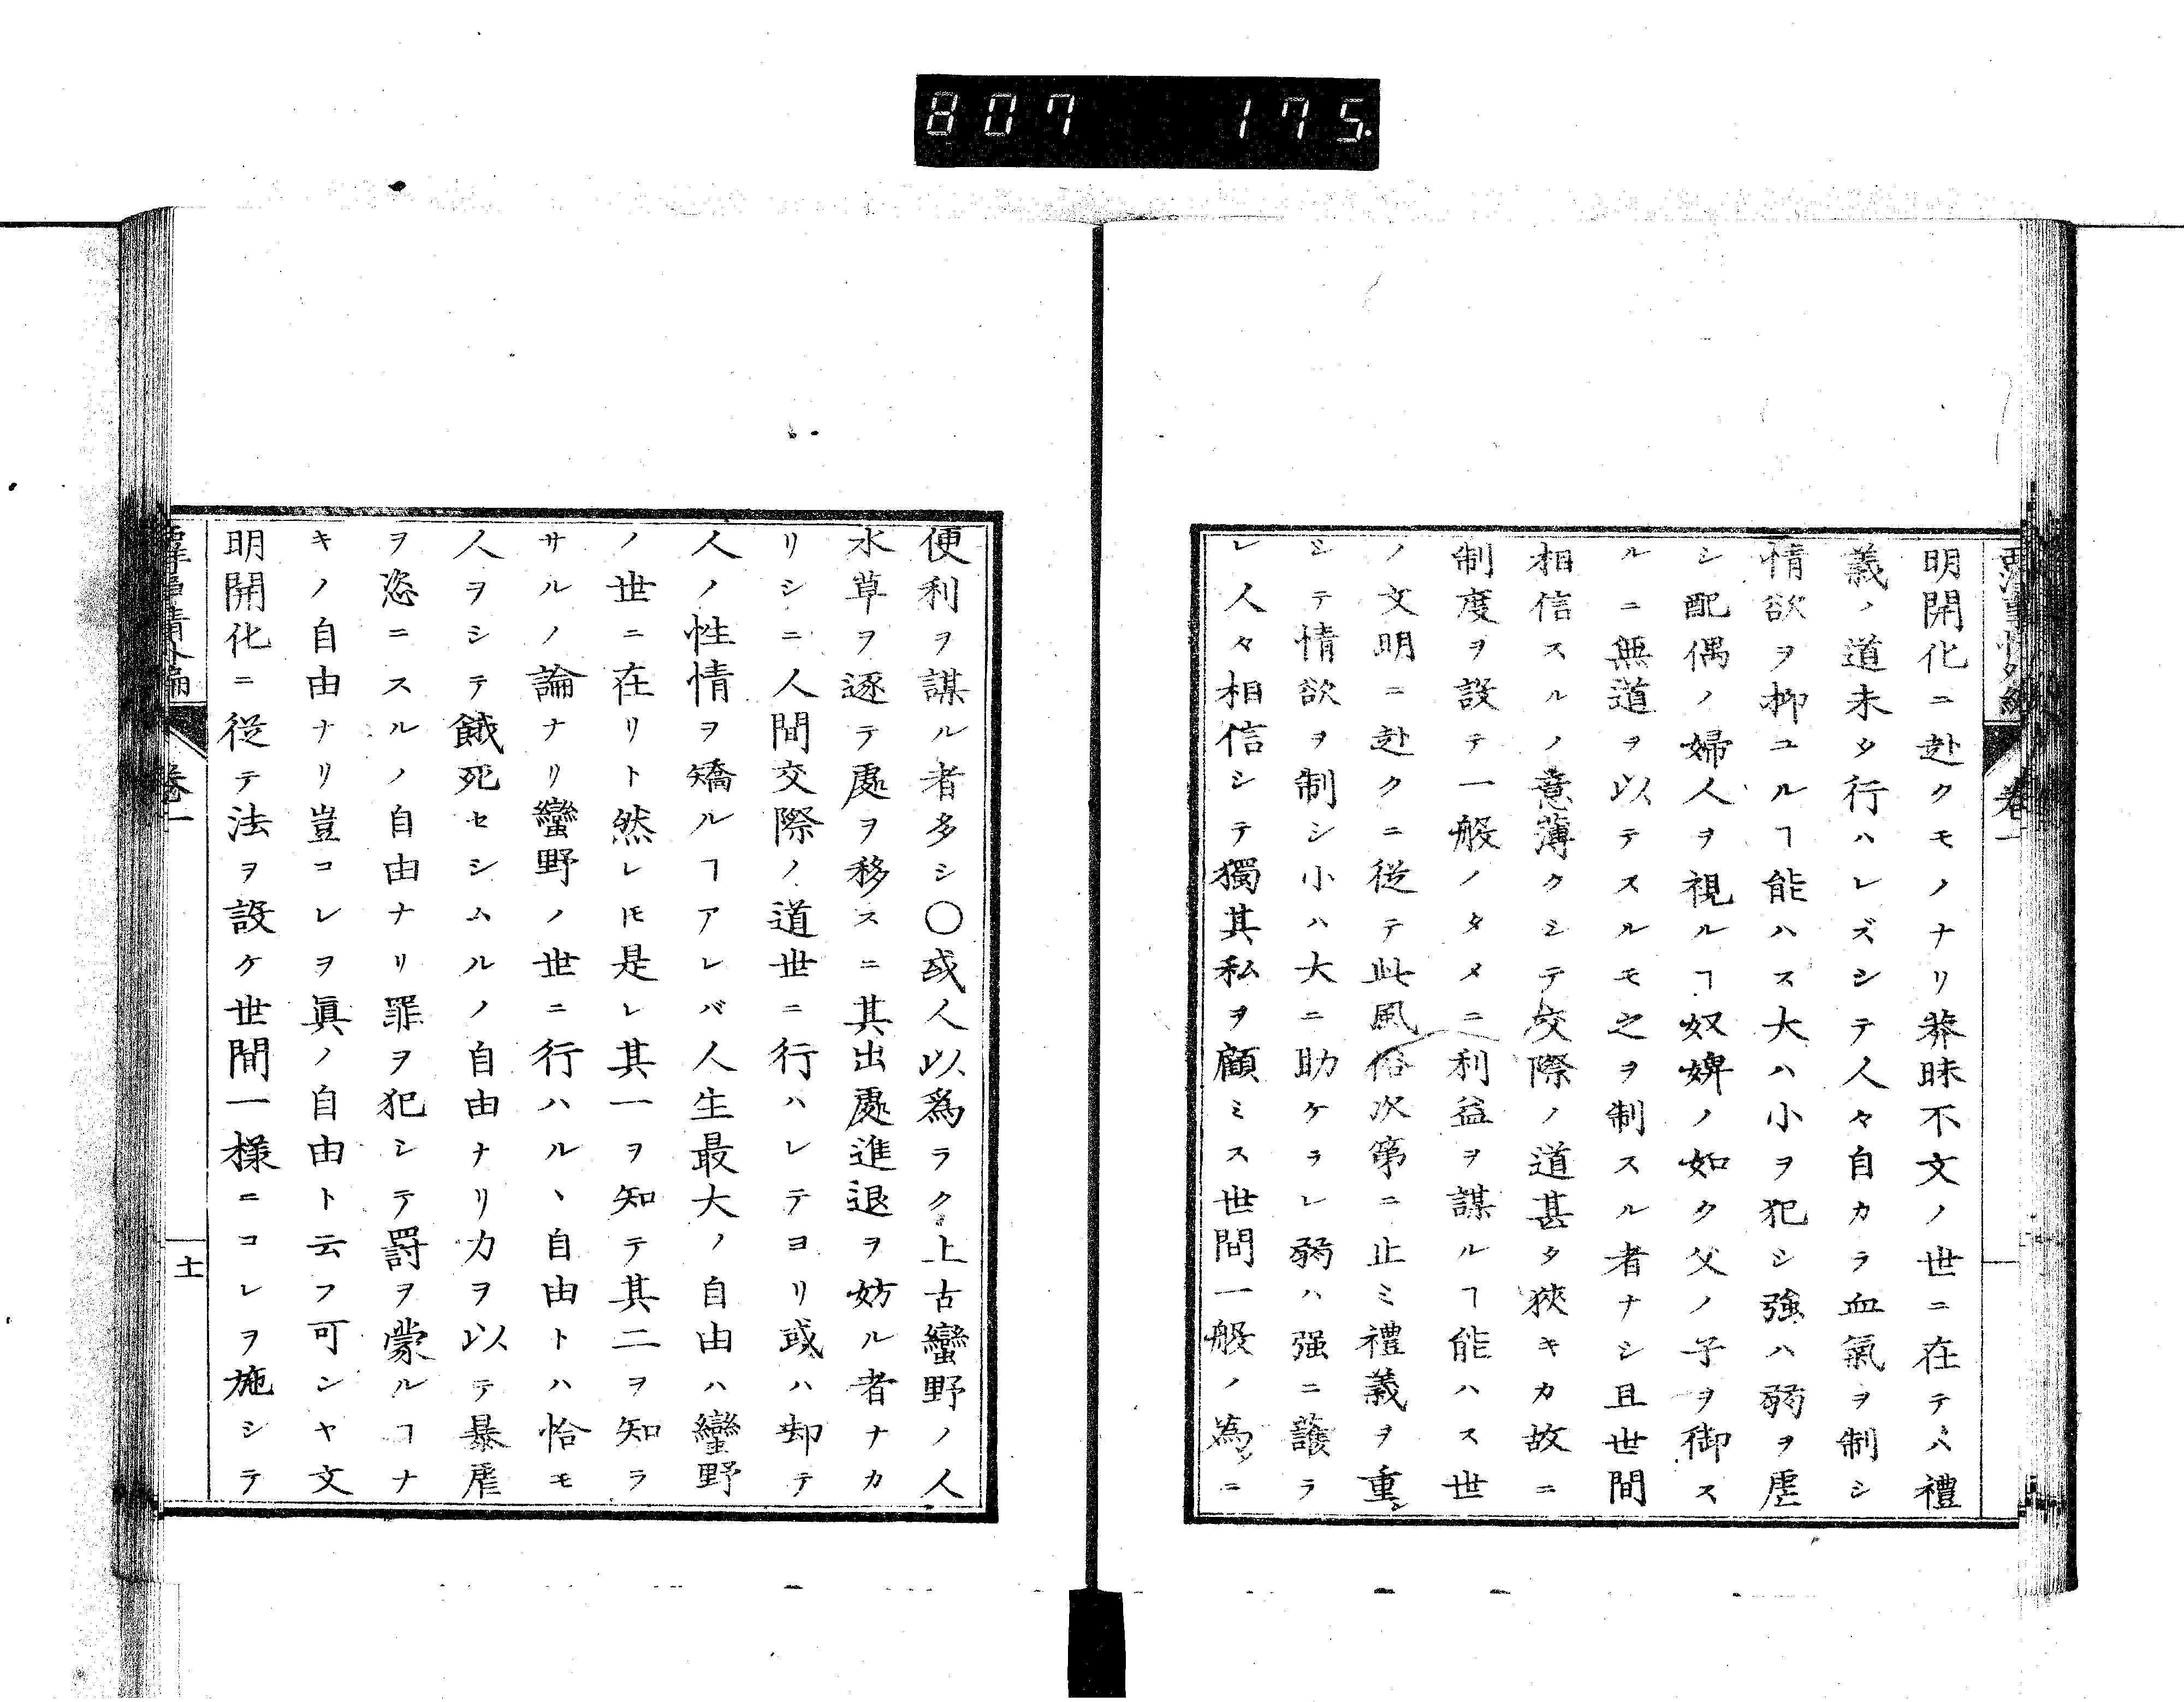 807 175.
卷一
明開化ニ赴クモノナリ莾昧不文ノ世ニ在テハ禮
義ノ道未タ行ハレズシテ人々自カラ血氣ヲ制シ
情欲ヲ抑ユルヿ能ハス大ハ小ヲ犯シ強ハ弱ヲ虐
シ配偶ノ婦人ヲ視ルヿ奴婢ノ如ク父ノ子ヲ御ス
ルニ無道ヲ以テスルモ之ヲ制スル者ナシ且世間
相信スルノ意薄クシテ交際ノ道甚タ狹キカ故ニ
制度ヲ設テ一般ノタメニ利益ヲ謀ルヿ能ハス世
ノ文明ニ赴クニ從テ此風俗次第ニ止ミ禮義ヲ重ン
シテ情欲ヲ制シ小ハ大ニ助ケラレ弱ハ强ニ護ラ
レ人々相信シテ獨其私ヲ顧ミス世間一般ノ為メニ
便利ヲ謀ル者多シ〇或人以爲ラク上古蠻野ノ人
水草ヲ逐テ處ヲ移スニ其出處進退ヲ妨ル者ナカ
リシニ人間交際ノ道世ニ行ハレテヨリ或ハ却テ
人ノ性情ヲ矯ルヿアレバ人生最大ノ自由ハ蠻野
ノ世ニ在リト然レ𪜈是レ其一ヲ知テ其二ヲ知ラ
サルノ論ナリ蠻野ノ世ニ行ハルヽ自由トハ恰モ
人ヲシテ餓死セシムルノ自由ナリ力ヲ以テ暴虐
ヲ恣ニスルノ自由ナリ罪ヲ犯シテ罸ヲ蒙ルヿナ
キノ自由ナリ豈コレヲ眞ノ自由ト云フ可ンヤ文
明開化ニ從テ法ヲ設ケ世間一樣ニコレヲ施シテ
西洋事情外編 卷一 十一